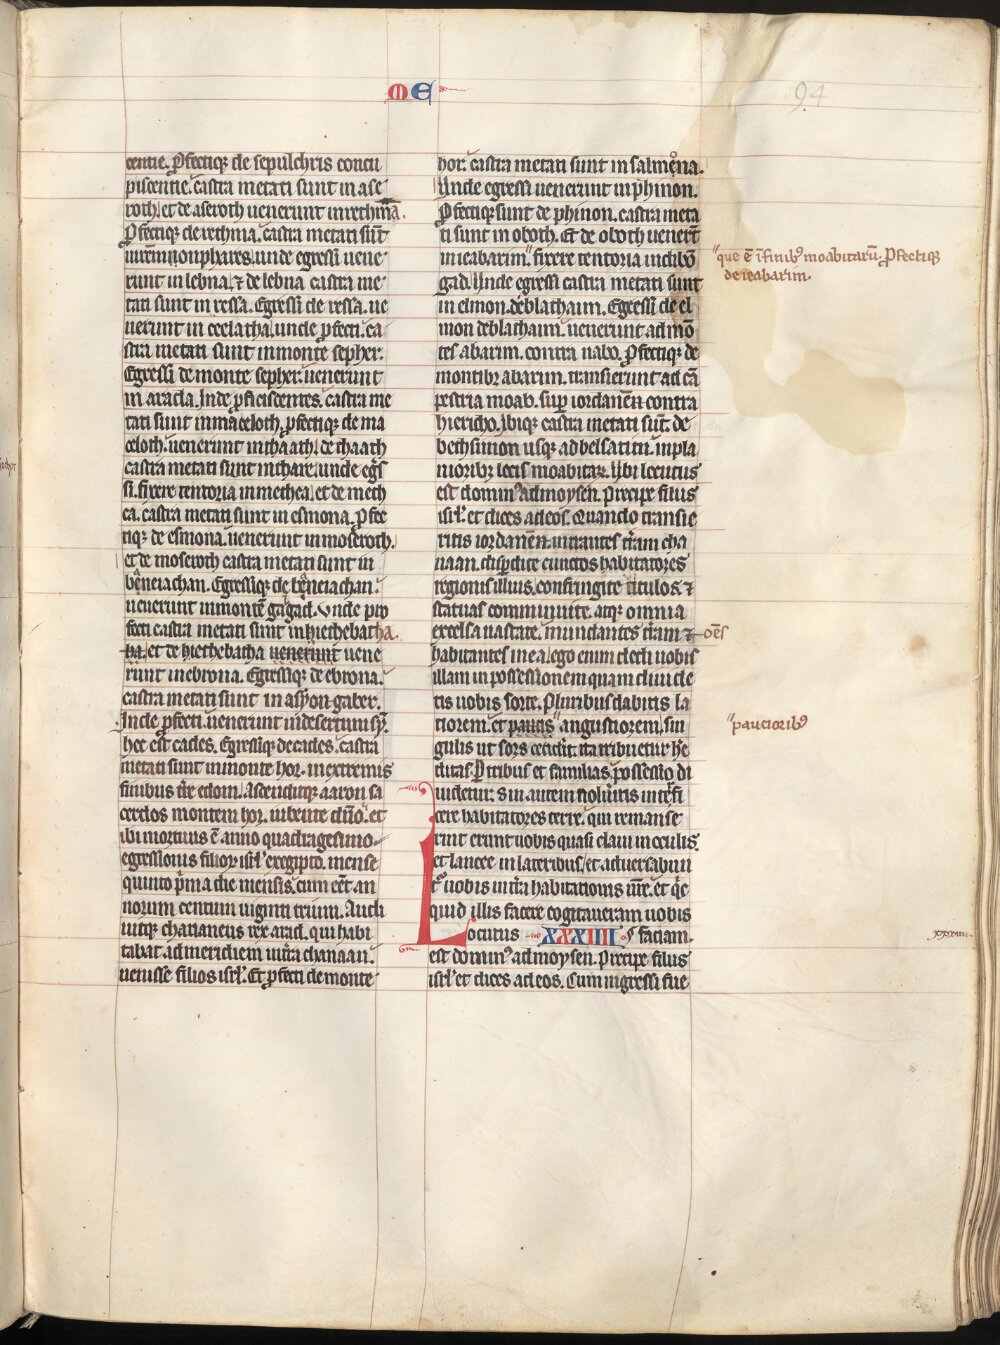 ME
94
centie. Pfectiq; de sepulchris concu
piscentie. castra metati sunt in ase
roth. et de aseroth uenerunt in rethma.
Pfectiq; de rethma. castra metati sūt
in remnonphares. unde egressi uene
runt in lebna. & de lebna castra me
tati sunt in ressa. Egressi de ressa. ue
nerunt in ceelatha. unde pfecti. ca
stra metati sunt in monte sepher.
Egressi de monte sepher. uenerunt
in arada. Inde pficiscentes. castra me
tati sunt in maceloth. pfectiq; de ma
celoth. uenerunt in thaath. de thaath
castra metati sunt in thare. unde egs
si. fixere tentoria in methca. et de meth
ca. castra metati sunt in esmona. Pfec
tiq; de esmona. uenerunt in moseroth.
et de moseroth castra metati sunt in
beneiachan. Egressiq; de beneiachan.
uenerunt in montē gadgad. unde pro
fecti castra metati sunt in hiethebatha.
et de hiethebatha uenerunt uene
runt in ebrona. Egressiq; de ebrona.
castra metati sunt in asyongaber.
Inde pfecti. uenerunt in desertum syn.
hec est cades. Egressiq; de cades. castra
metati sunt in monte hor. in extremis
finibus tre edom. Ascenditq; aaron sa
cerdos montem hor. iubente dño. et
ibi mortuus ē anno quadragesimo
egressionis filior isrl' ex egipto. mense
quinto pma die mensis. cum eēt an
norum centum uiginti trium. Audi
uitq; chananeus rex arad. qui habi
tabat ad meridiem in tra chanaan.
uenisse filios isrl'. Et pfecti de monte
hor. castra metati sunt in salmona.
Unde egressi uenerunt in phinon.
Pfectiq; sunt de phinon. castra meta
ti sunt in oboth. Et de oboth uenerūt
in ieabarim." fixere tentoria in dibon
gad. Unde egressi castra metati sunt
in elmon. deblathaim. Egressi de el
mon deblathaim. uenerunt ad mō
tes abarim. contra nabo. Pfectiq; de
montib; abarim. transierunt ad cā
pestria moab. sup iordanen contra
hiericho. Ibiq; castra metati sūt. de
bethsimon usq; ad belsatim. in pla
niorib; locis moabitar. Ubi locutus
est domin' ad moysen. Precipe filiis
isrl'. et dices ad eos. Quando transie
ritis iordanen. intrantes tram cha
naan. dispdite cunctos habitatores
regionis illius. confringite titulos. &
statuas comminuite. atq; omnia
excelsa uastate. mundantes tram &
habitantes in ea. ego enim dedi uobis
illam in possessionem quam diuide
tis uobis sorte. Pluribus dabitis la
tiorem. et paucis" angustiorem. sin
gulis ut sors cecidit. ita tribuetur he
ditas. P tribus et familias. possessio di
uidetur. Sin autem nolueritis intfi
cere habitatores terre. qui remanse
rint erunt uobis quasi claui in oculis.
et lancee in lateribus. et aduersabun
t' uobis in tra habitationis ure. et qc
quid illis facere cogitaueram uobis
faciam.
XXXIIII
Locutus
est domin' ad moysen. Precipe filiis
isrl'. et dices ad eos. Cum ingressi fue
"que ē ī finib; moabitarū. Pfectiq;
de ieabarim.
oēs
"paucioribȝ
xxxiiii.